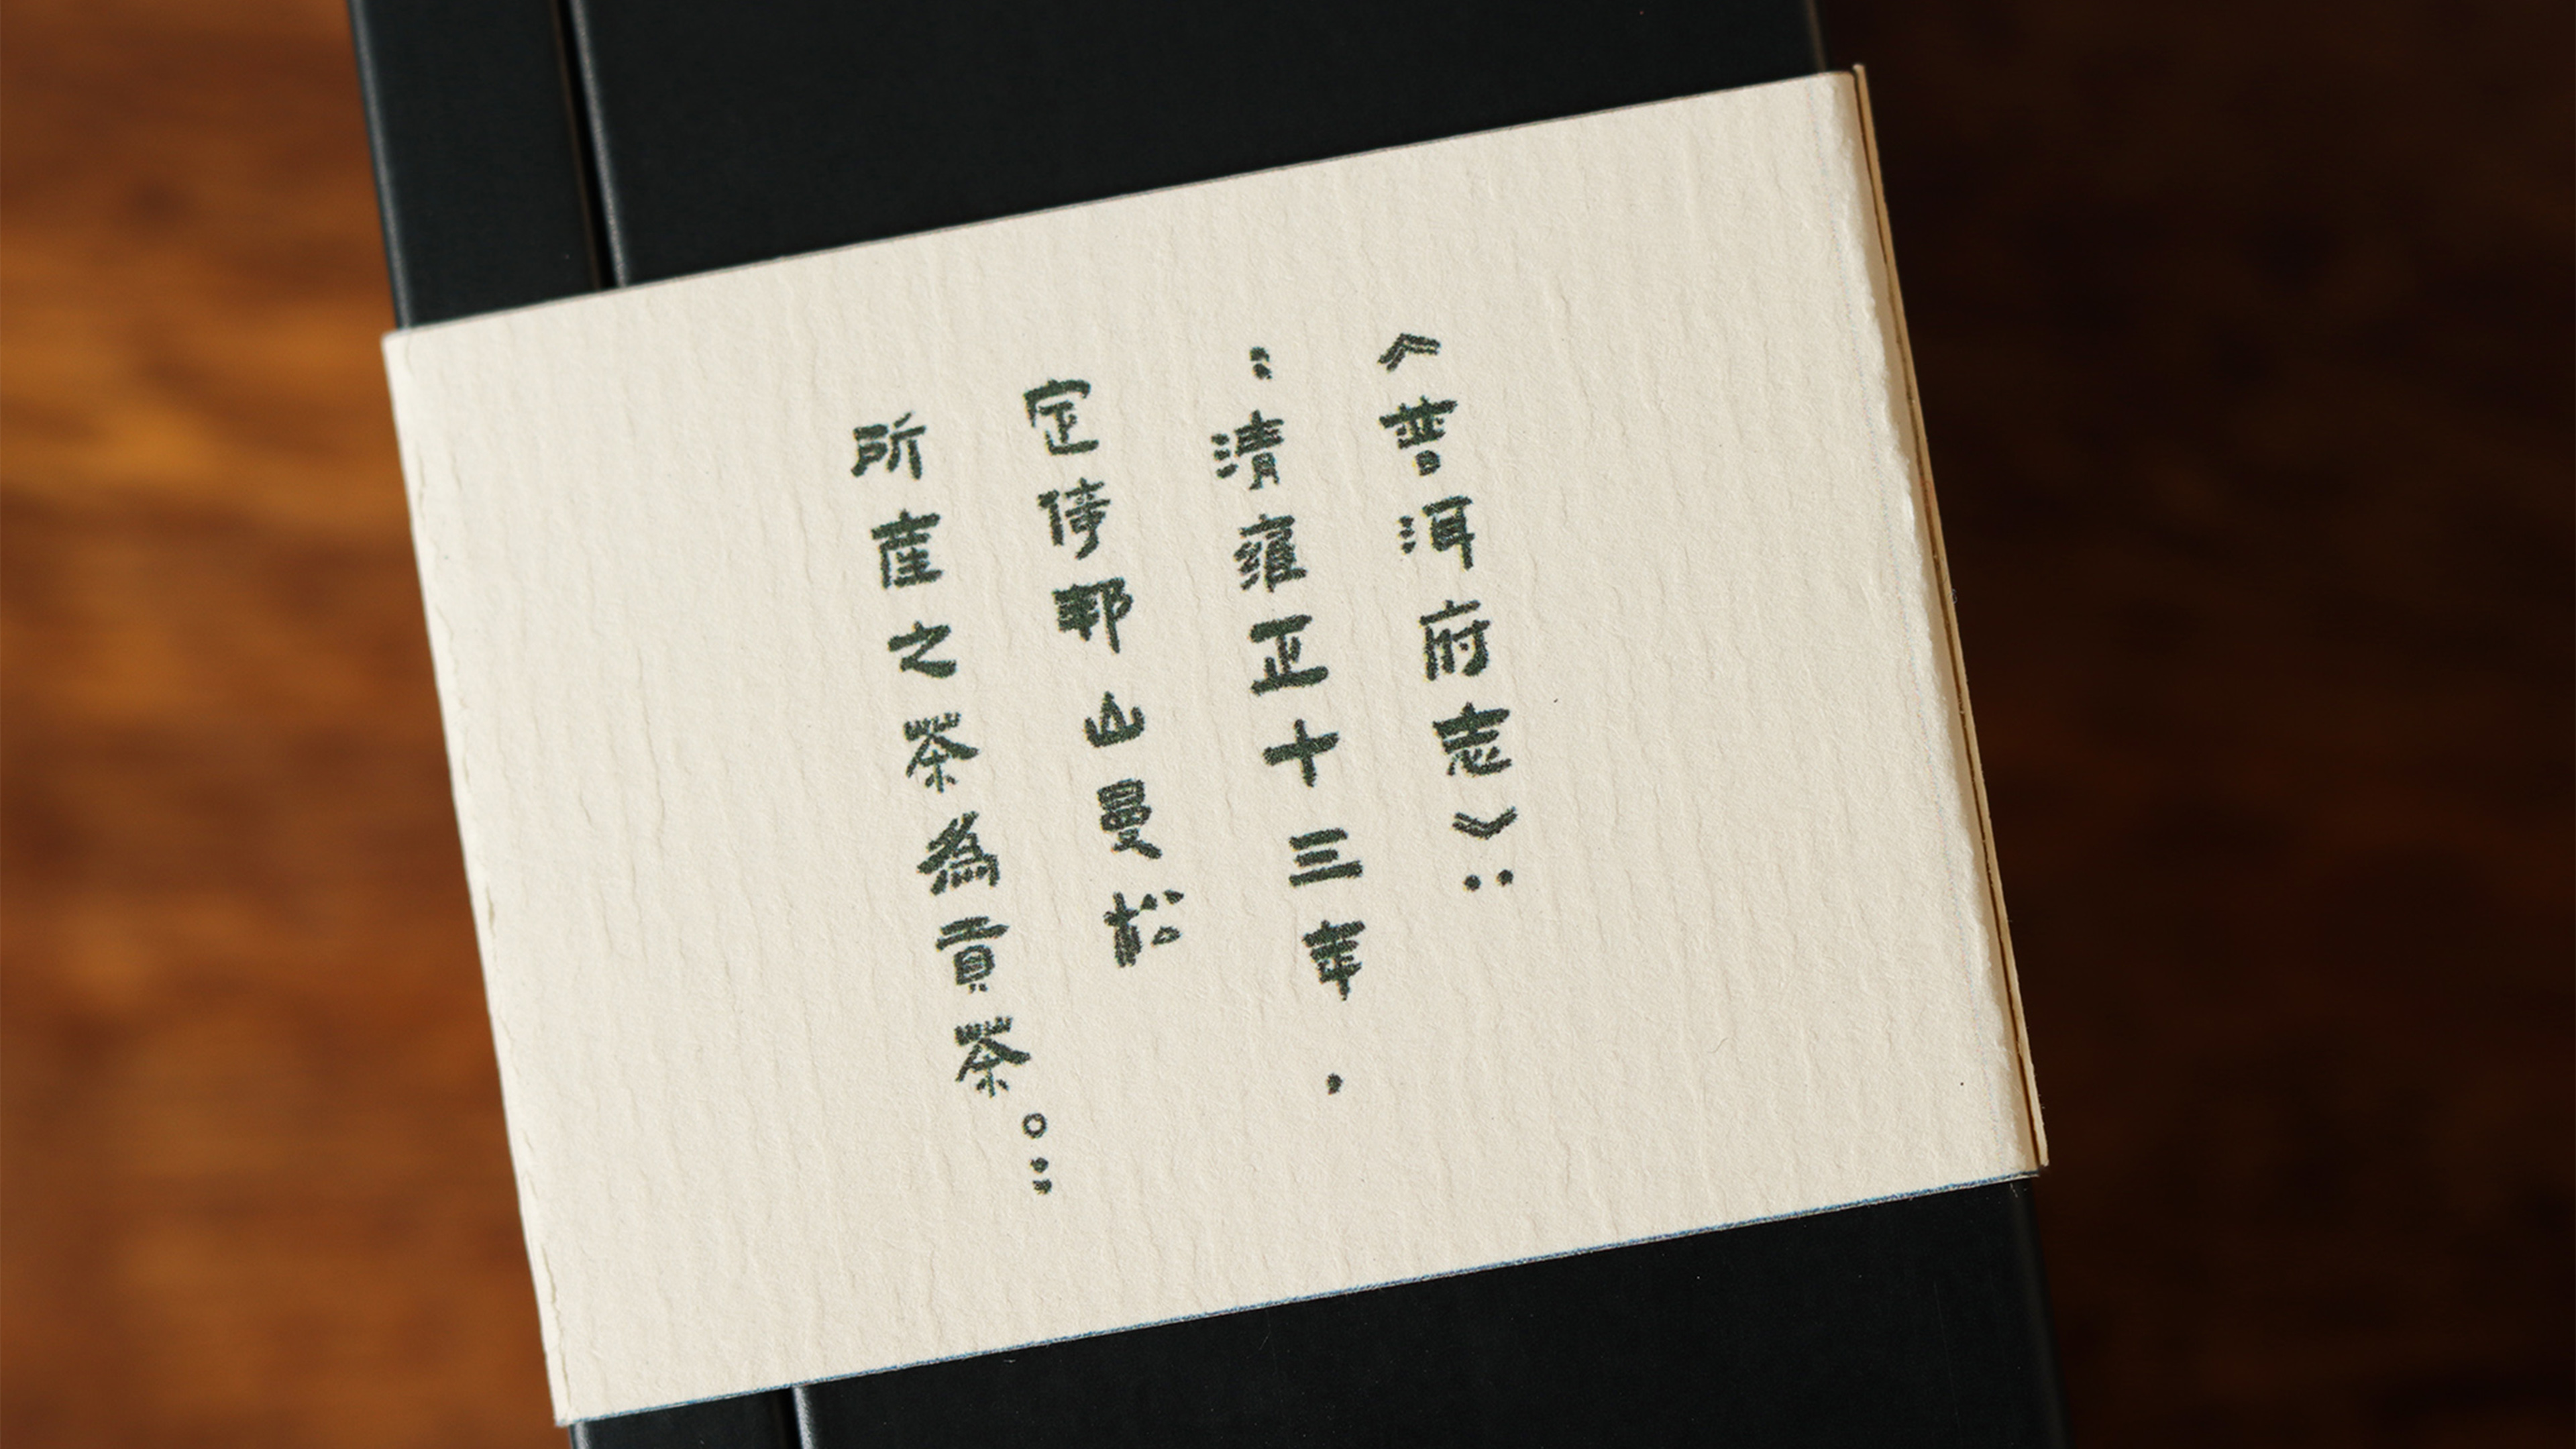 《普洱府志》：
“清雍正十三年，
定倚邦山曼松
所產之茶為貢茶。”